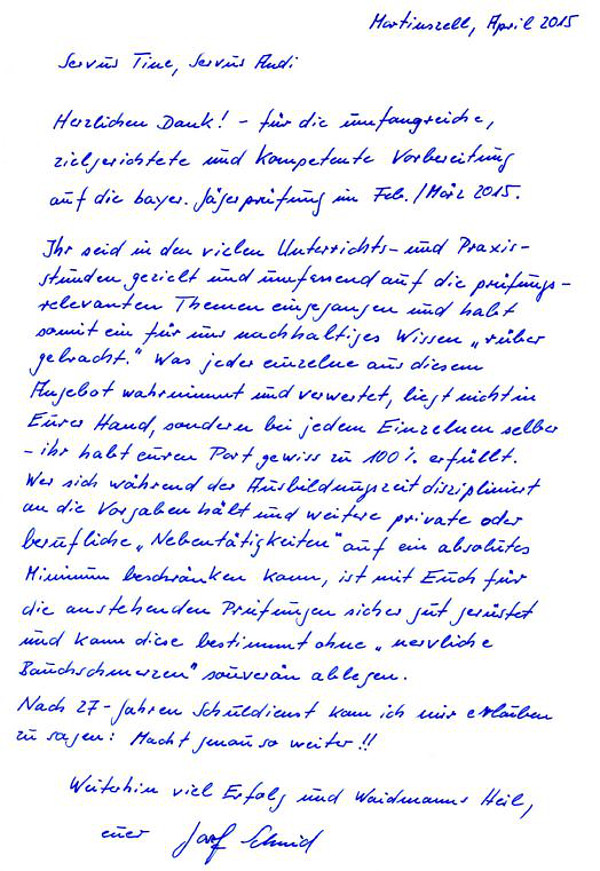 Martinszell, April 2015
Servus Tine, Servus Andi
Herzlichen Dank! - für die umfangreiche,
zielgerichtete und kompetente Vorbereitung
auf die bayer. Jägerprüfung im Feb./März 2015.
Ihr seid in den vielen Unterrichts- und Praxis-
stunden gezielt und umfassend auf die prüfungs-
relevanten Themen eingegangen und habt
somit ein für uns nachhaltiges Wissen „rüber
gebracht." Was jeder einzelne aus diesem
Angebot wahrnimmt und verwertet, liegt nicht in
Eurer Hand, sondern bei jedem Einzelnen selber
- ihr habt euren Part gewiss zu 100% erfüllt.
Wer sich während der Ausbildungszeit diszipliniert
an die Vorgaben hält und weitere private oder
berufliche „Nebentätigkeiten" auf ein absolutes
Minimum beschränken kann, ist mit Euch für
die anstehenden Prüfungen sicher gut gerüstet
und kann diese bestimmt ohne „nervliche
Bauchschmerzen" souverän ablegen.
Nach 27-Jahren Schuldienst kann ich mir erlauben
zu sagen: Macht genau so weiter!!
Weiterhin viel Erfolg und Waidmanns Heil,
euer Schmid